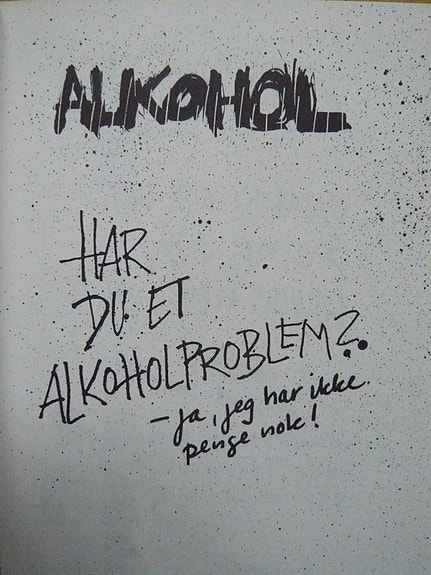 ALKOHOL
HAR
DU ET
ALKOHOLPROBLEM?
- ja, jeg har ikke
penge nok!